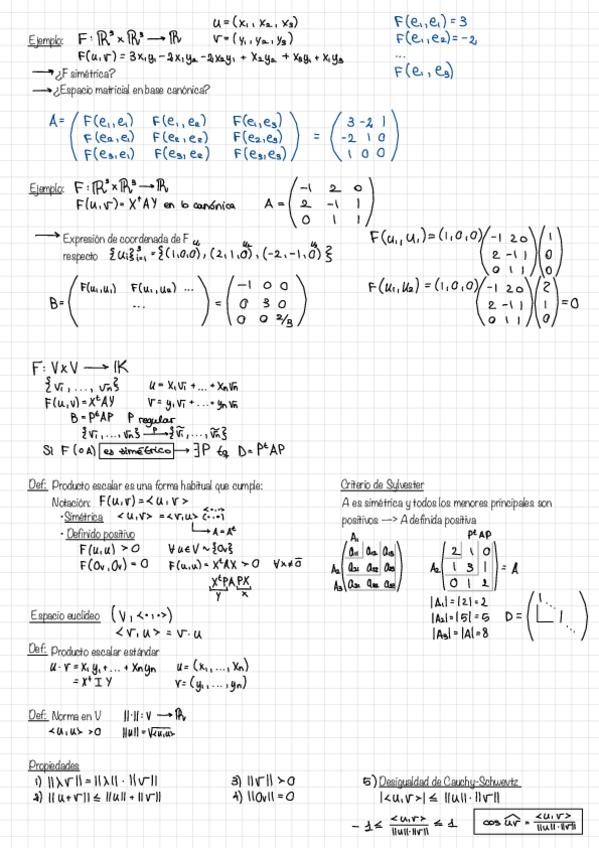 Ejemplo: F: ℝ³ x ℝ³ → ℝ   u = (x₁, x₂, x₃)   v = (y₁, y₂, y₃)
F(u,v) = 3x₁y₁ - 2x₁y₂ - 2x₂y₁ + x₂y₂ + x₃y₁ + x₁y₃
F(e₁,e₁) = 3
F(e₁,e₂) = -2
...
F(e₁, e₃)
→ ¿F simétrica?
→ ¿Espacio matricial en base canónica?
A = ( F(e₁,e₁) F(e₁,e₂) F(e₁,e₃) ) = ( 3 -2 1 )
( F(e₂,e₁) F(e₂,e₂) F(e₂,e₃) ) ( -2 1 0 )
( F(e₃,e₁) F(e₃,e₂) F(e₃,e₃) ) ( 1 0 0 )
Ejemplo: F: ℝ³ x ℝ³ → ℝ
F(u,v) = XᵗAY en la canónica   A = ( -1 2 0 )
( 2 -1 1 )
( 0 1 1 )
→ Expresión de coordenada de F
respecto {uᵢ}³ᵢ₌₁ = {(1,0,0), (2,1,0), (-2,-1,0)}
u₁ u₂ u₃
F(u₁,u₁) = (1,0,0) ( -1 2 0 ) ( 1 )
( 2 -1 1 ) ( 0 )
( 0 1 1 ) ( 0 )
B = ( F(u₁,u₁) F(u₁,u₂) ... ) = ( -1 0 0 )
( ... ) ( 0 3 0 )
( 0 0 2/3 )
F(u₁,u₂) = (1,0,0) ( -1 2 0 ) ( 2 )
( 2 -1 1 ) ( 1 ) = 0
( 0 1 1 ) ( 0 )
F: V x V → 𝕂
{v₁, ..., vₙ}   u = x₁v₁ + ... + xₙvₙ
F(u,v) = XᵗAY   v = y₁v₁ + ... + yₙvₙ
B = PᵗAP   P regular
{v₁, ..., vₙ} →ᴾ {ṽ₁, ..., ṽₙ}
Si F (o A) es simétrico → ∃P tq D = PᵗAP
Def: Producto escalar es una forma habitual que cumple:
Notación: F(u,v) = <u,v>
· Simétrica   <u,v> = <v,u>   <·,·>
→ A = Aᵗ
· Definido positivo
F(u,u) > 0   ∀u∈V ~ {0v}
F(0v,0v) = 0   F(u,u) = XᵗAX > 0   ∀x≠0̄
XᵗPAPX
Y   X
Criterio de Sylvester
A es simétrica y todos los menores principales son
positivos —> A definida positiva
A₁   PᵗAP
( a₁₁ a₁₂ a₁₃ ) ( 2 1 0 )
A₂ ( a₂₁ a₂₂ a₂₃ )   A₂ ( 1 3 1 ) = A
A₃ ( a₃₁ a₃₂ a₃₃ ) ( 0 1 2 )
|A₁| = |2| = 2
|A₂| = |5| = 5   D =
|A₃| = |A| = 8
Espacio euclídeo (V, <·,·>)
<v,u> = v·u
Def: Producto escalar estándar
u·v = x₁y₁ + ... + xₙyₙ   u = (x₁, ..., xₙ)
= Xᵗ I Y   v = (y₁, ..., yₙ)
Def: Norma en V   ||·||: V → ℝ
<u,u> > 0   ||u|| = √<u,u>
Propiedades
1) ||λv|| = ||λ||·||v||   3) ||v|| > 0   5) Desigualdad de Cauchy-Schwevtz
2) ||u+v|| ≤ ||u|| + ||v||   4) ||0v|| = 0   |<u,v>| ≤ ||u||·||v||
-1 ≤ <u,v> / ||u||·||v|| ≤ 1   cos uv̂ = <u,v> / ||u||·||v||